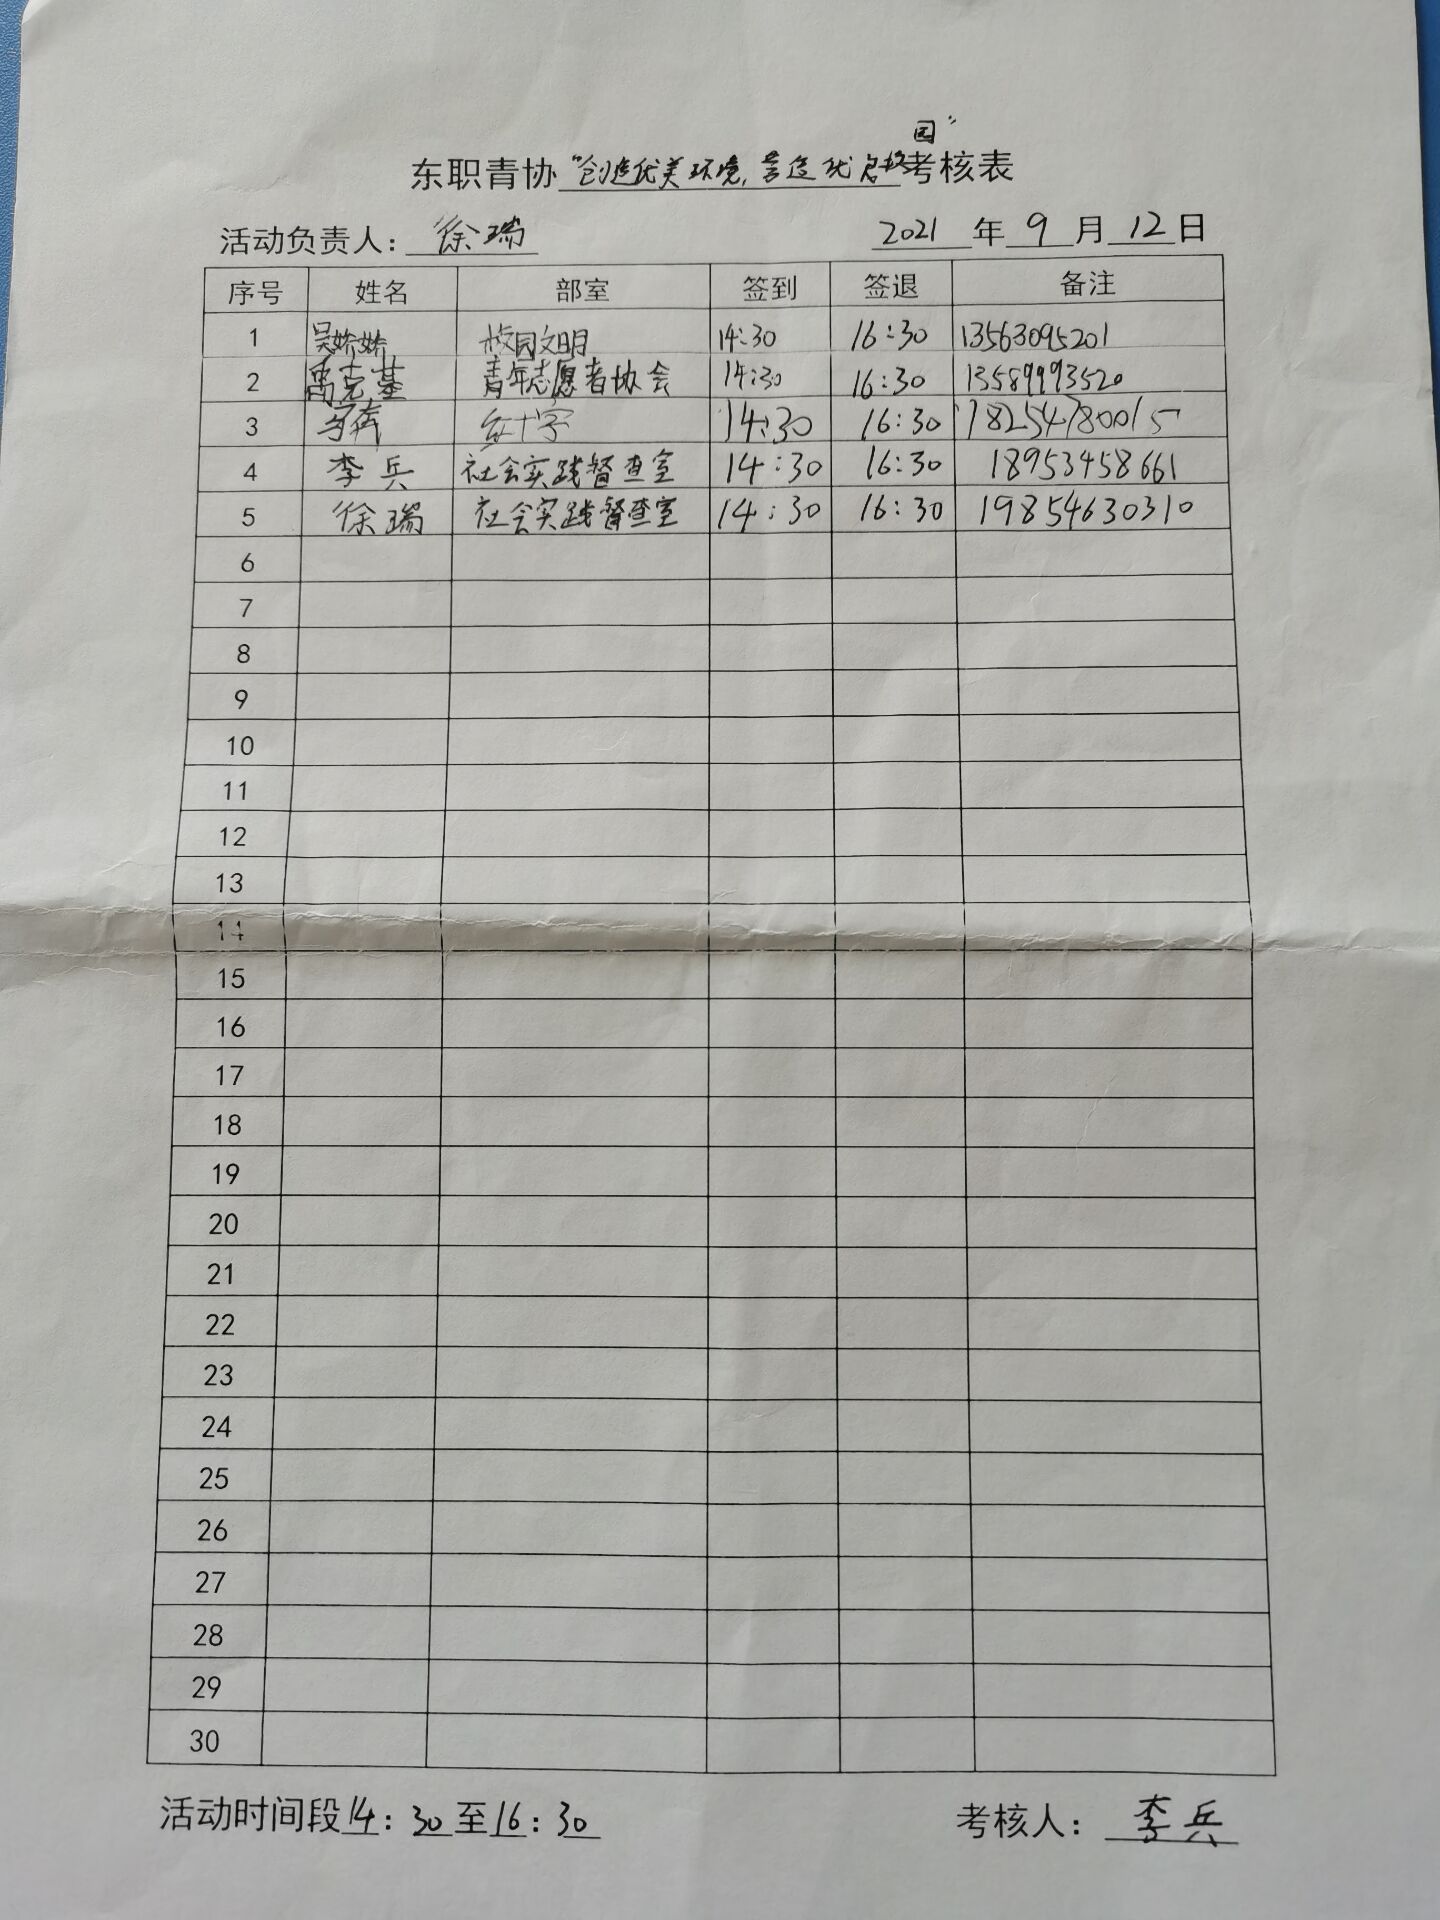 东职青协“创造优美环境,营造优良校园”考核表
活动负责人: 徐瑞 2021 年 9 月 12 日
序号 姓名 部室 签到 签退 备注
1 吴娇娇 校园文明 14:30 16:30 13563095201
2 高克基 青年志愿者协会 14:30 16:30 13589993520
3 红十字 14:30 16:30 18254780015
4 李兵 社会实践督查室 14:30 16:30 18953458661
5 徐瑞 社会实践督查室 14:30 16:30 19854630310
6
7
8
9
10
11
12
13
14
15
16
17
18
19
20
21
22
23
24
25
26
27
28
29
30
活动时间段14:30至16:30 考核人: 李兵